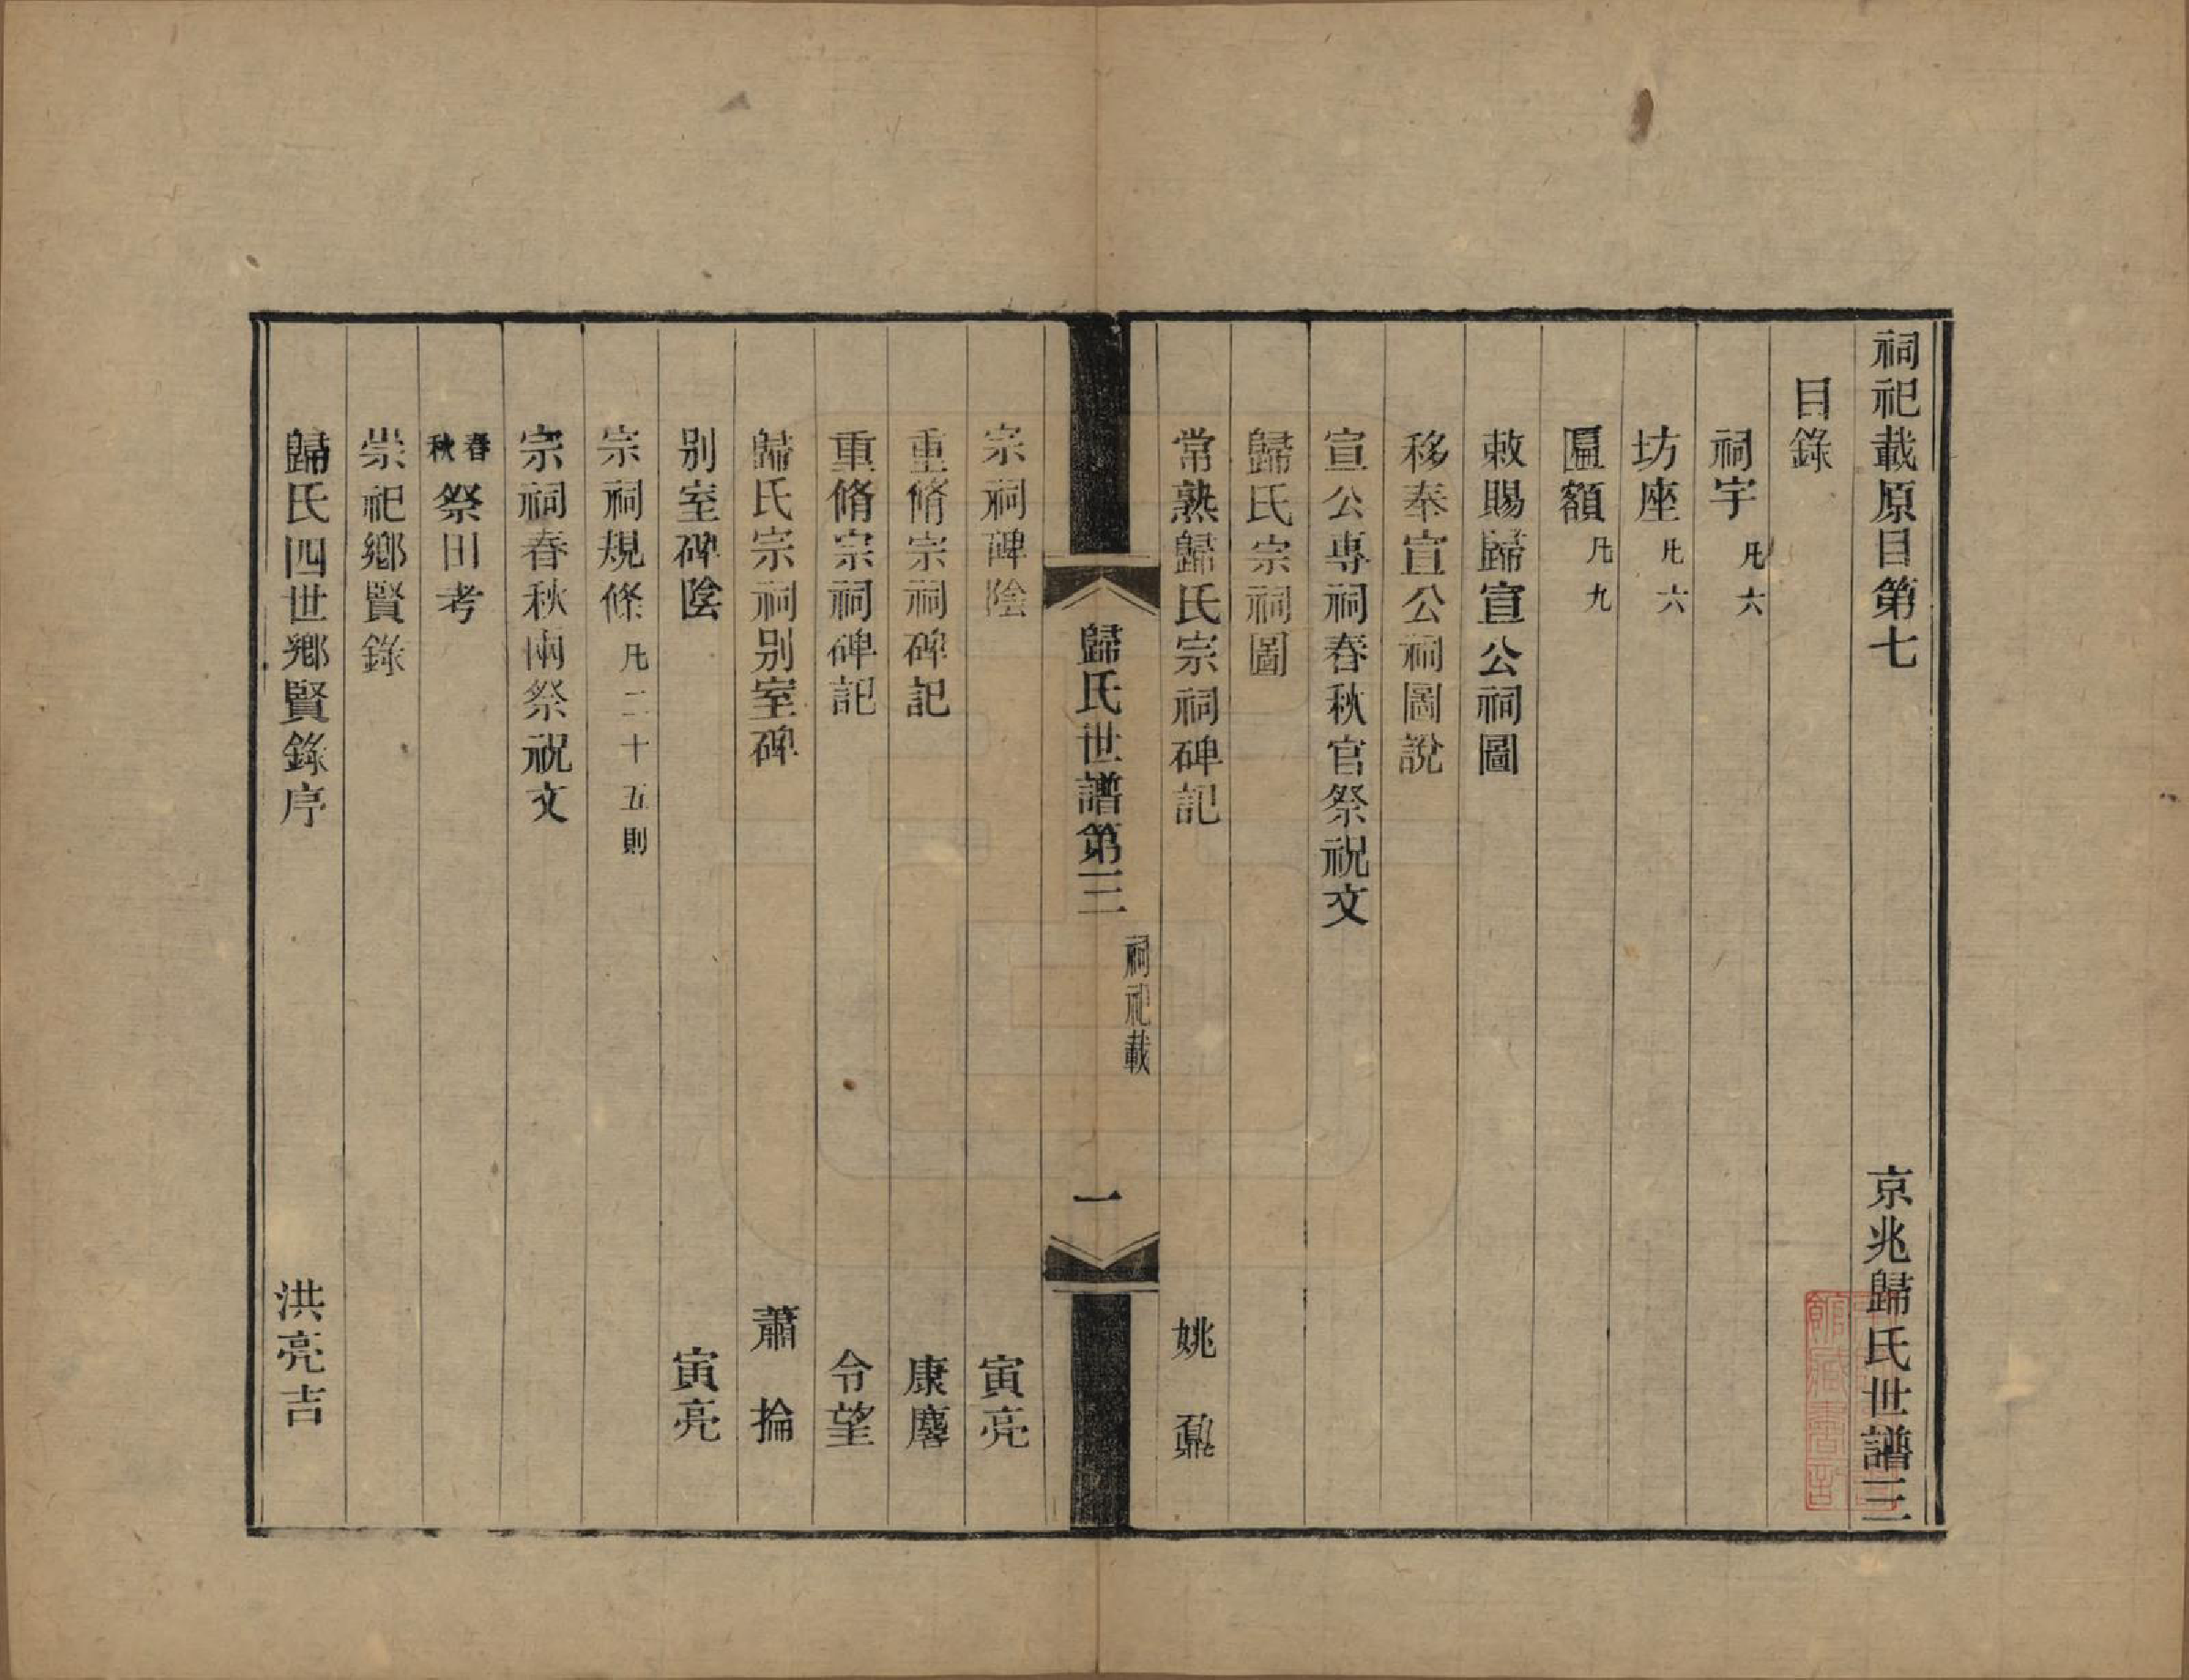 祠祀載原目第七 京兆歸氏世譜三
目錄
祠宇 凡六
坊座 凡六
匾額 凡九
敕賜歸宣公祠圖
移奉宣公祠圖說
宣公專祠春秋官祭祝文
歸氏宗祠圖
常熟歸氏宗祠碑記 姚鼐
歸氏世譜第三 祠祀載 一
宗祠碑陰 寅亮
重脩宗祠碑記 康麐
重脩宗祠碑記 令望
歸氏宗祠別室碑 蕭掄
別室碑陰 寅亮
宗祠規條 凡二十五則
宗祠春秋兩祭祝文
春秋祭田考
崇祀鄉賢錄
歸氏四世鄉賢錄序 洪亮吉